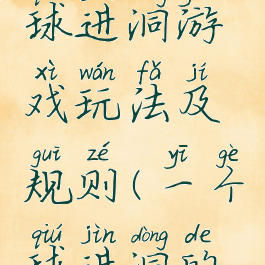 球进洞游
xì wán fǎ jí
戏玩法及
guī zé yī gè
规则(一个
qiú jìn dòng de
球进洞的